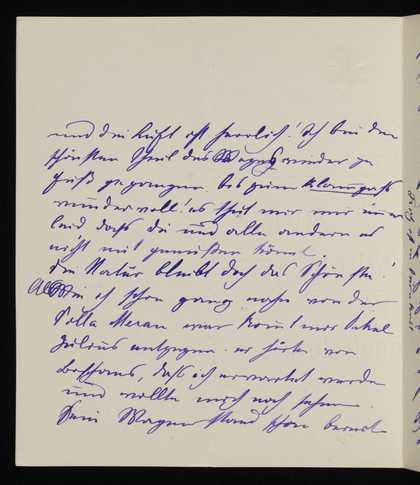 und die Luft ist herrlich! Ich bin den
schönsten Theil des Weges wieder zu
Fuß gegangen. bis zum
wundervoll! es thut mir nur immer
leid daß du und alle andern es
nicht mit genießen könnt.
die Natur bleibt doch das Schönste!
Als ich schon ganz nahe von der
Villa Meran war kommt mir
Julius entgegen. er hörte von
daß ich erwartet werde
und wollte mich noch sehen.
Sein Wagen stand schon bereit